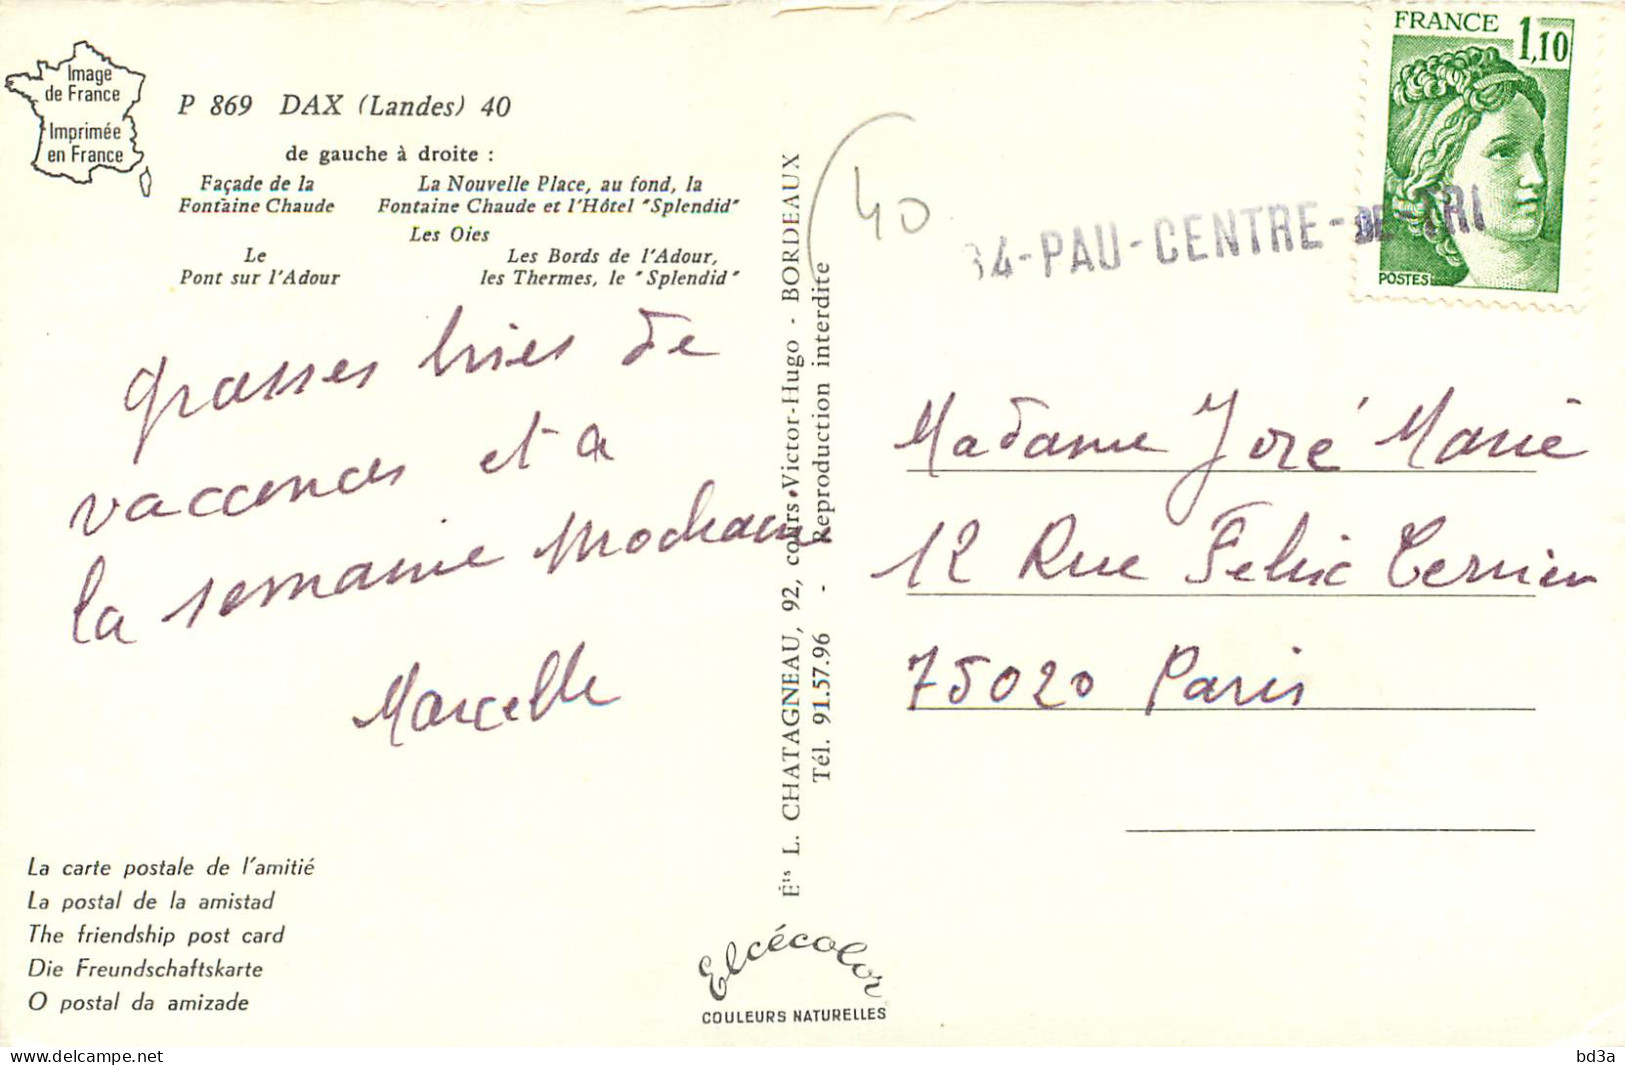 Image
de France
Imprimée
en France
P 869 DAX (Landes) 40
de gauche à droite :
Façade de la
Fontaine Chaude
La Nouvelle Place, au fond, la
Fontaine Chaude et l'Hôtel "Splendid"
Les Oies
Le
Pont sur l'Adour
Les Bords de l'Adour,
les Thermes, le "Splendid"
grosses bises de
vaccences et a
la semaine prochaine
Marcelle
La carte postale de l'amitié
La postal de la amistad
The friendship post card
Die Freundschaftskarte
O postal da amizade
Éts L. CHATAGNEAU, 92, cours Victor-Hugo - BORDEAUX
Tél. 91.57.96 - Reproduction interdite
Elcécolor
COULEURS NATURELLES
40
FRANCE 1,10
POSTES
64-PAU-CENTRE-DE-TRI
Madame José Marie
12 Rue Felix Terrier
75020 Paris
delcampe.net
bd3a